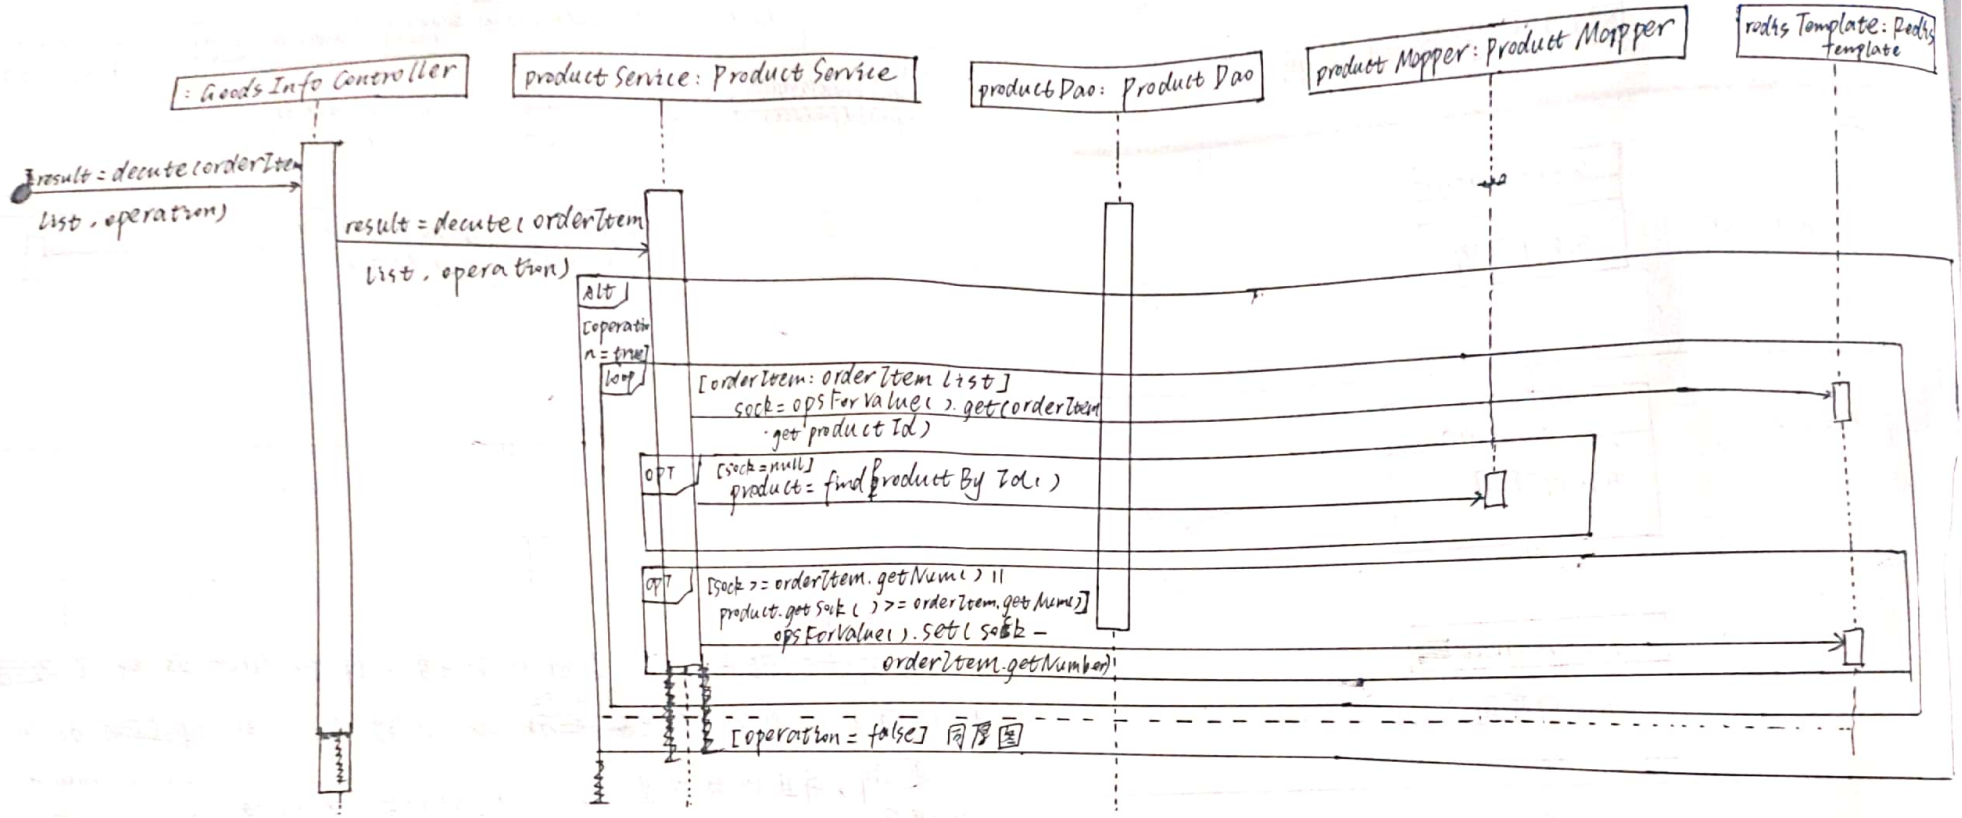 : Goods Info Controller
product Service: Product Service
product Dao: Product Dao
product Mapper: Product Mapper
redis Template: Redis
template
result = decute(orderItem
list, operation)
result = decute( orderItem
list, operation)
Alt
[operatio
n = true]
loop
[orderItem: orderItem list]
sock = opsForValue( ). get(orderItem
.get product Id)
OPT
[sock = null]
product = find product By Id( )
opT
[sock >= orderItem. getNum( ) ||
product.get sock ( ) >= orderItem.get Num()]
opsForValue( ). set( sock -
orderItem.getNumber)
[operation = false] 同原图